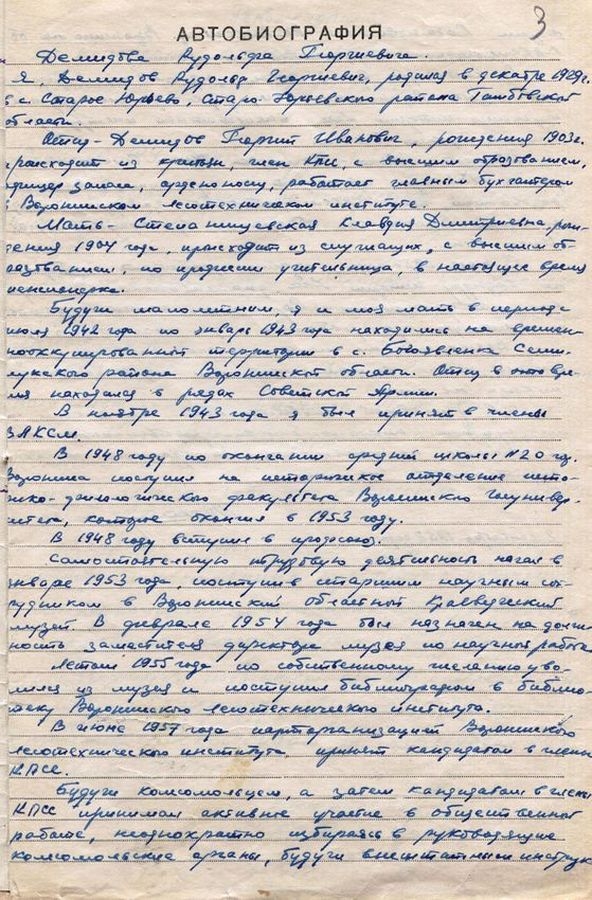 3
АВТОБИОГРАФИЯ
Демидова Рудольфа Георгиевича.
Я, Демидов Рудольф Георгиевич, родился в декабре 1929 г.
в с. Старое Юрьево, Старо-Юрьевского района Тамбовской
области.
Отец - Демидов Георгий Иванович, рождения 1903 г.
происходит из крестьян, член КПСС, с высшим образованием,
офицер запаса, орденоносец, работает главным бухгалтером
в Воронежском лесотехническом институте.
Мать - Степанищевская Клавдия Дмитриевна, рож-
дения 1904 года, происходит из служащих, с высшим об
разованием, по профессии учительница, в настоящее время
пенсионерка.
Будучи малолетним, я и моя мать в период с
июля 1942 года по январь 1943 года находились на времен
нооккупированной территории в с. Богоявленка Семи-
лукского района Воронежской области. Отец в это вре-
мя находился в рядах Советской Армии.
В ноябре 1943 года я был принят в члены
ВЛКСМ.
В 1948 году по окончании средней школы №20 гор.
Воронежа поступил на историческое отделение исто-
рико-филологического факультета Воронежского госуниве
рситета, которое окончил в 1953 году.
В 1948 году вступил в профсоюз.
Самостоятельную трудовую деятельность начал в
январе 1953 года, поступив старшим научным сот-
рудником в Воронежский областной краеведческий
музей. В феврале 1954 года был назначен на долж-
ность заместителя директора музея по научной работе
Летом 1955 года по собственному желанию уво-
лился из музея и поступил библиографом в библио-
теку Воронежского лесотехнического института.
В июне 1957 года парторганизацией Воронежского
лесотехнического института принят кандидатом в члены
КПСС.
Будучи комсомольцем, а затем кандидатом в члены
КПСС принимал активное участие в общественной
работе, неоднократно избираясь в руководящие
комсомольские органы, будучи внештатным инструк